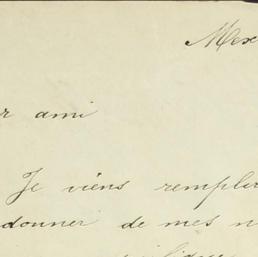 Mex
r ami
Je viens remplir
donner de mes n